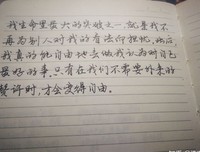 我生命里最大的突破之一，就是我不
再为别人对我的看法而担忧。此后，
我真的能自由地去做我认为对自己
最好的事，只有在我们不需要外来的
赞许时，才会变得自由。